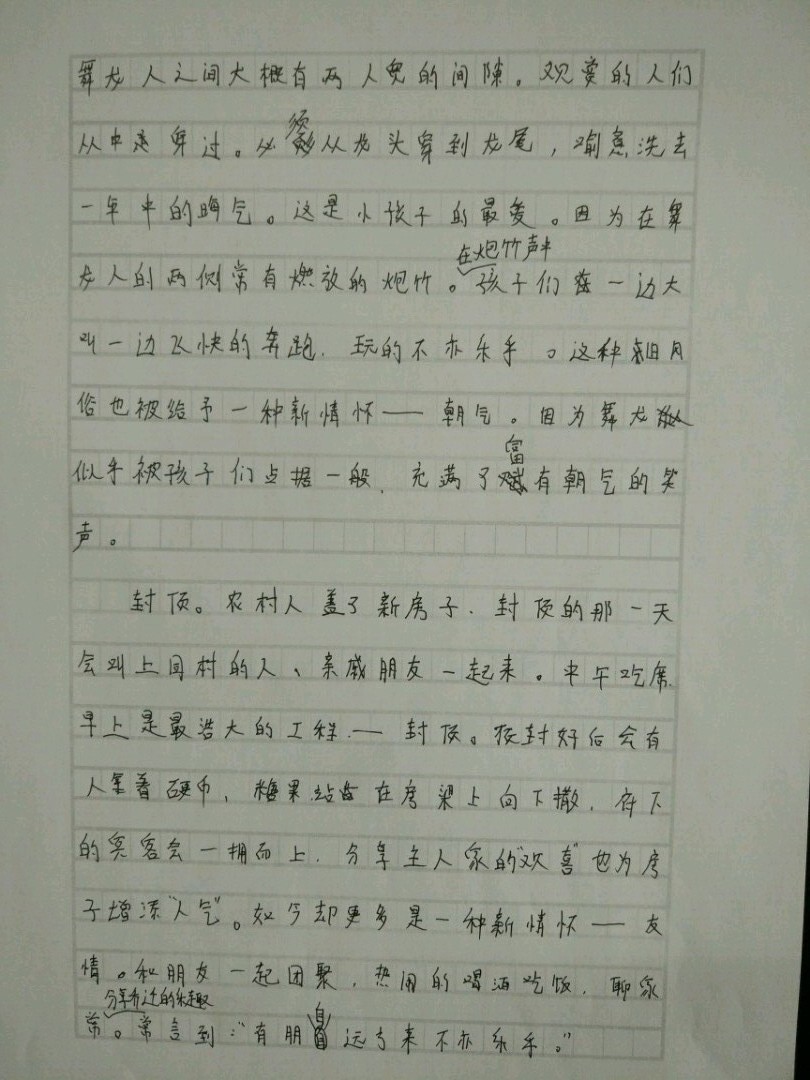 舞龙人之间大概有两人宽的间隙。观赏的人们
从中走穿过。必须从龙头穿到龙尾，喻意洗去
一年中的晦气。这是小孩子的最爱。因为在舞
在炮竹声中
龙人的两侧常有燃放的炮竹。孩子们一边大
叫一边飞快的奔跑，玩的不亦乐乎。这种旧风
俗也被给予一种新情怀——朝气。因为舞龙
似乎被孩子们占据一般，充满了富有朝气的笑
声。
封顶。农村人盖了新房子，封顶的那一天
会叫上同村的人、亲戚朋友一起来。中午吃席，
早上是最浩大的工程——封顶。按封好后会有
人拿着硬币、糖果站在房梁上向下撒，在下
的宾客会一拥而上，分享主人家的“欢喜”也为房
子增添“人气”。如今却更多是一种新情怀——友
情。和朋友一起团聚，热闹的喝酒吃饭，聊家
分享的乐趣
常。常言到：“有朋自远方来不亦乐乎。”